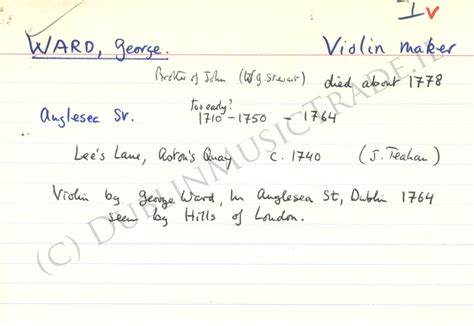 I v
WARD, George. Violin maker
Brother of John (W.G. Stewart) died about 1778
too early?
Anglesea St. 1710-1750 - 1764
Lee's Lane, Aston's Quay c. 1740 (J. Teahan)
Violin by George Ward, in Anglesea St, Dublin 1764
seen by Hills of London.
(C) DublinMusicTrade.ie